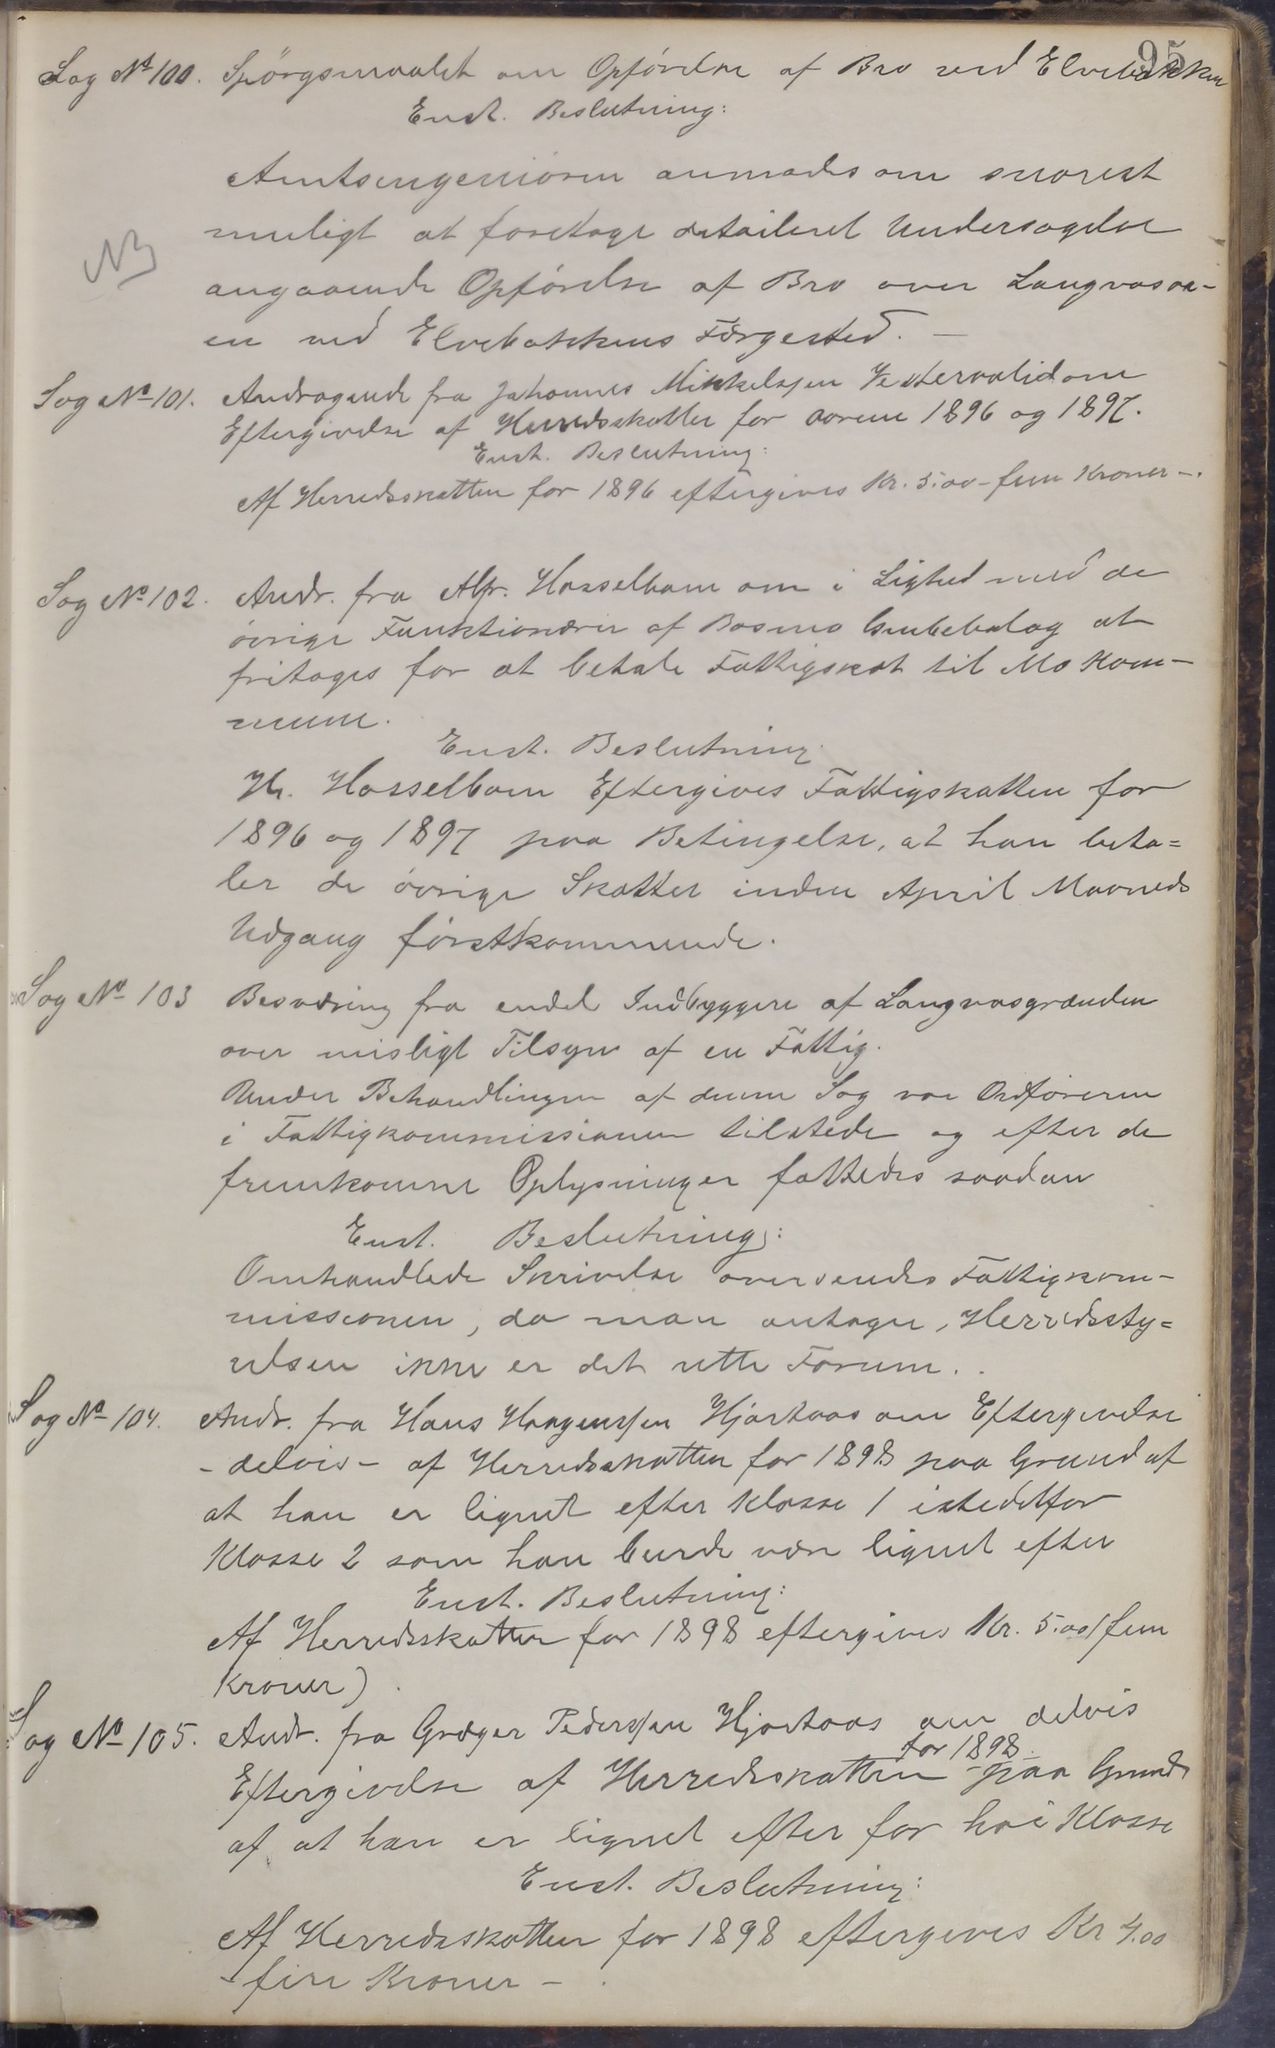 95
Sag No 100. Spörgsmaalet om Opförelse af Bro ved Elvebakken
Enst. Beslutning:
Amtsingeniören anmodes om snarest
muligt at foretage detaileret Undersøgelse
NB
angaaende Opförelse af Bro over Langvasaa-
en ved Elvebakkens Færgested. —
Sag No 101. Andragende fra Johannes Mikkelsen Vesteralid om
Eftergivelse af Herredsskatter for aarene 1896 og 1897.
Enst. Beslutning:
Af Herredsskatten for 1896 eftergives Kr. 5.00 - fem Kroner -.
Sag No 102. Andr. fra Alfr. Hasselbom om i Lighed med de
övrige Funktionærer af Bosmo Grubebolag at
fritages for at betale Fattigskat til Mo Kom-
mune.
Enst. Beslutning:
Hr. Hasselbom Eftergives Fattigskatten for
1896 og 1897 paa Betingelse, at han beta=
ler de övrige Skatter inden April Maaneds
Udgang förstkommende.
Sag No 103 Besværing fra endel Indbyggere af Langvasgrænden
over misligt Tilsyn af en Fattig.
Under Behandlingen af denne Sag var Ordföreren
i Fattigkommissionen tilstede og efter de
fremkomne Oplysninger fattedes saadan
Enst. Beslutning:
Omhandlede Skrivelse oversendes Fattigkom-
missionen, da man antager, Herredssty=
relsen ikke er det rette Forum..
Sag No 104. Andr. fra Hans Haagenssen Hjartaas om Eftergivelse
- delvis - af Herredsskatten for 1898 paa Grund af
at han er lignet efter Klasse 1 istedetfor
Klasse 2 som han burde være lignet efter
Enst. Beslutning:
Af Herredsskatten for 1898 eftergives Kr. 5.00 (fem
Kroner).
Sag No 105. Andr. fra Græger Pederssen Hjartaas om delvis
for 1898
Eftergivelse af Herredsskatten paa Grund
af at han er lignet efter for høi Klasse
Enst. Beslutning:
Af Herredsskatten for 1898 eftergives Kr 4.00
- fire Kroner - .